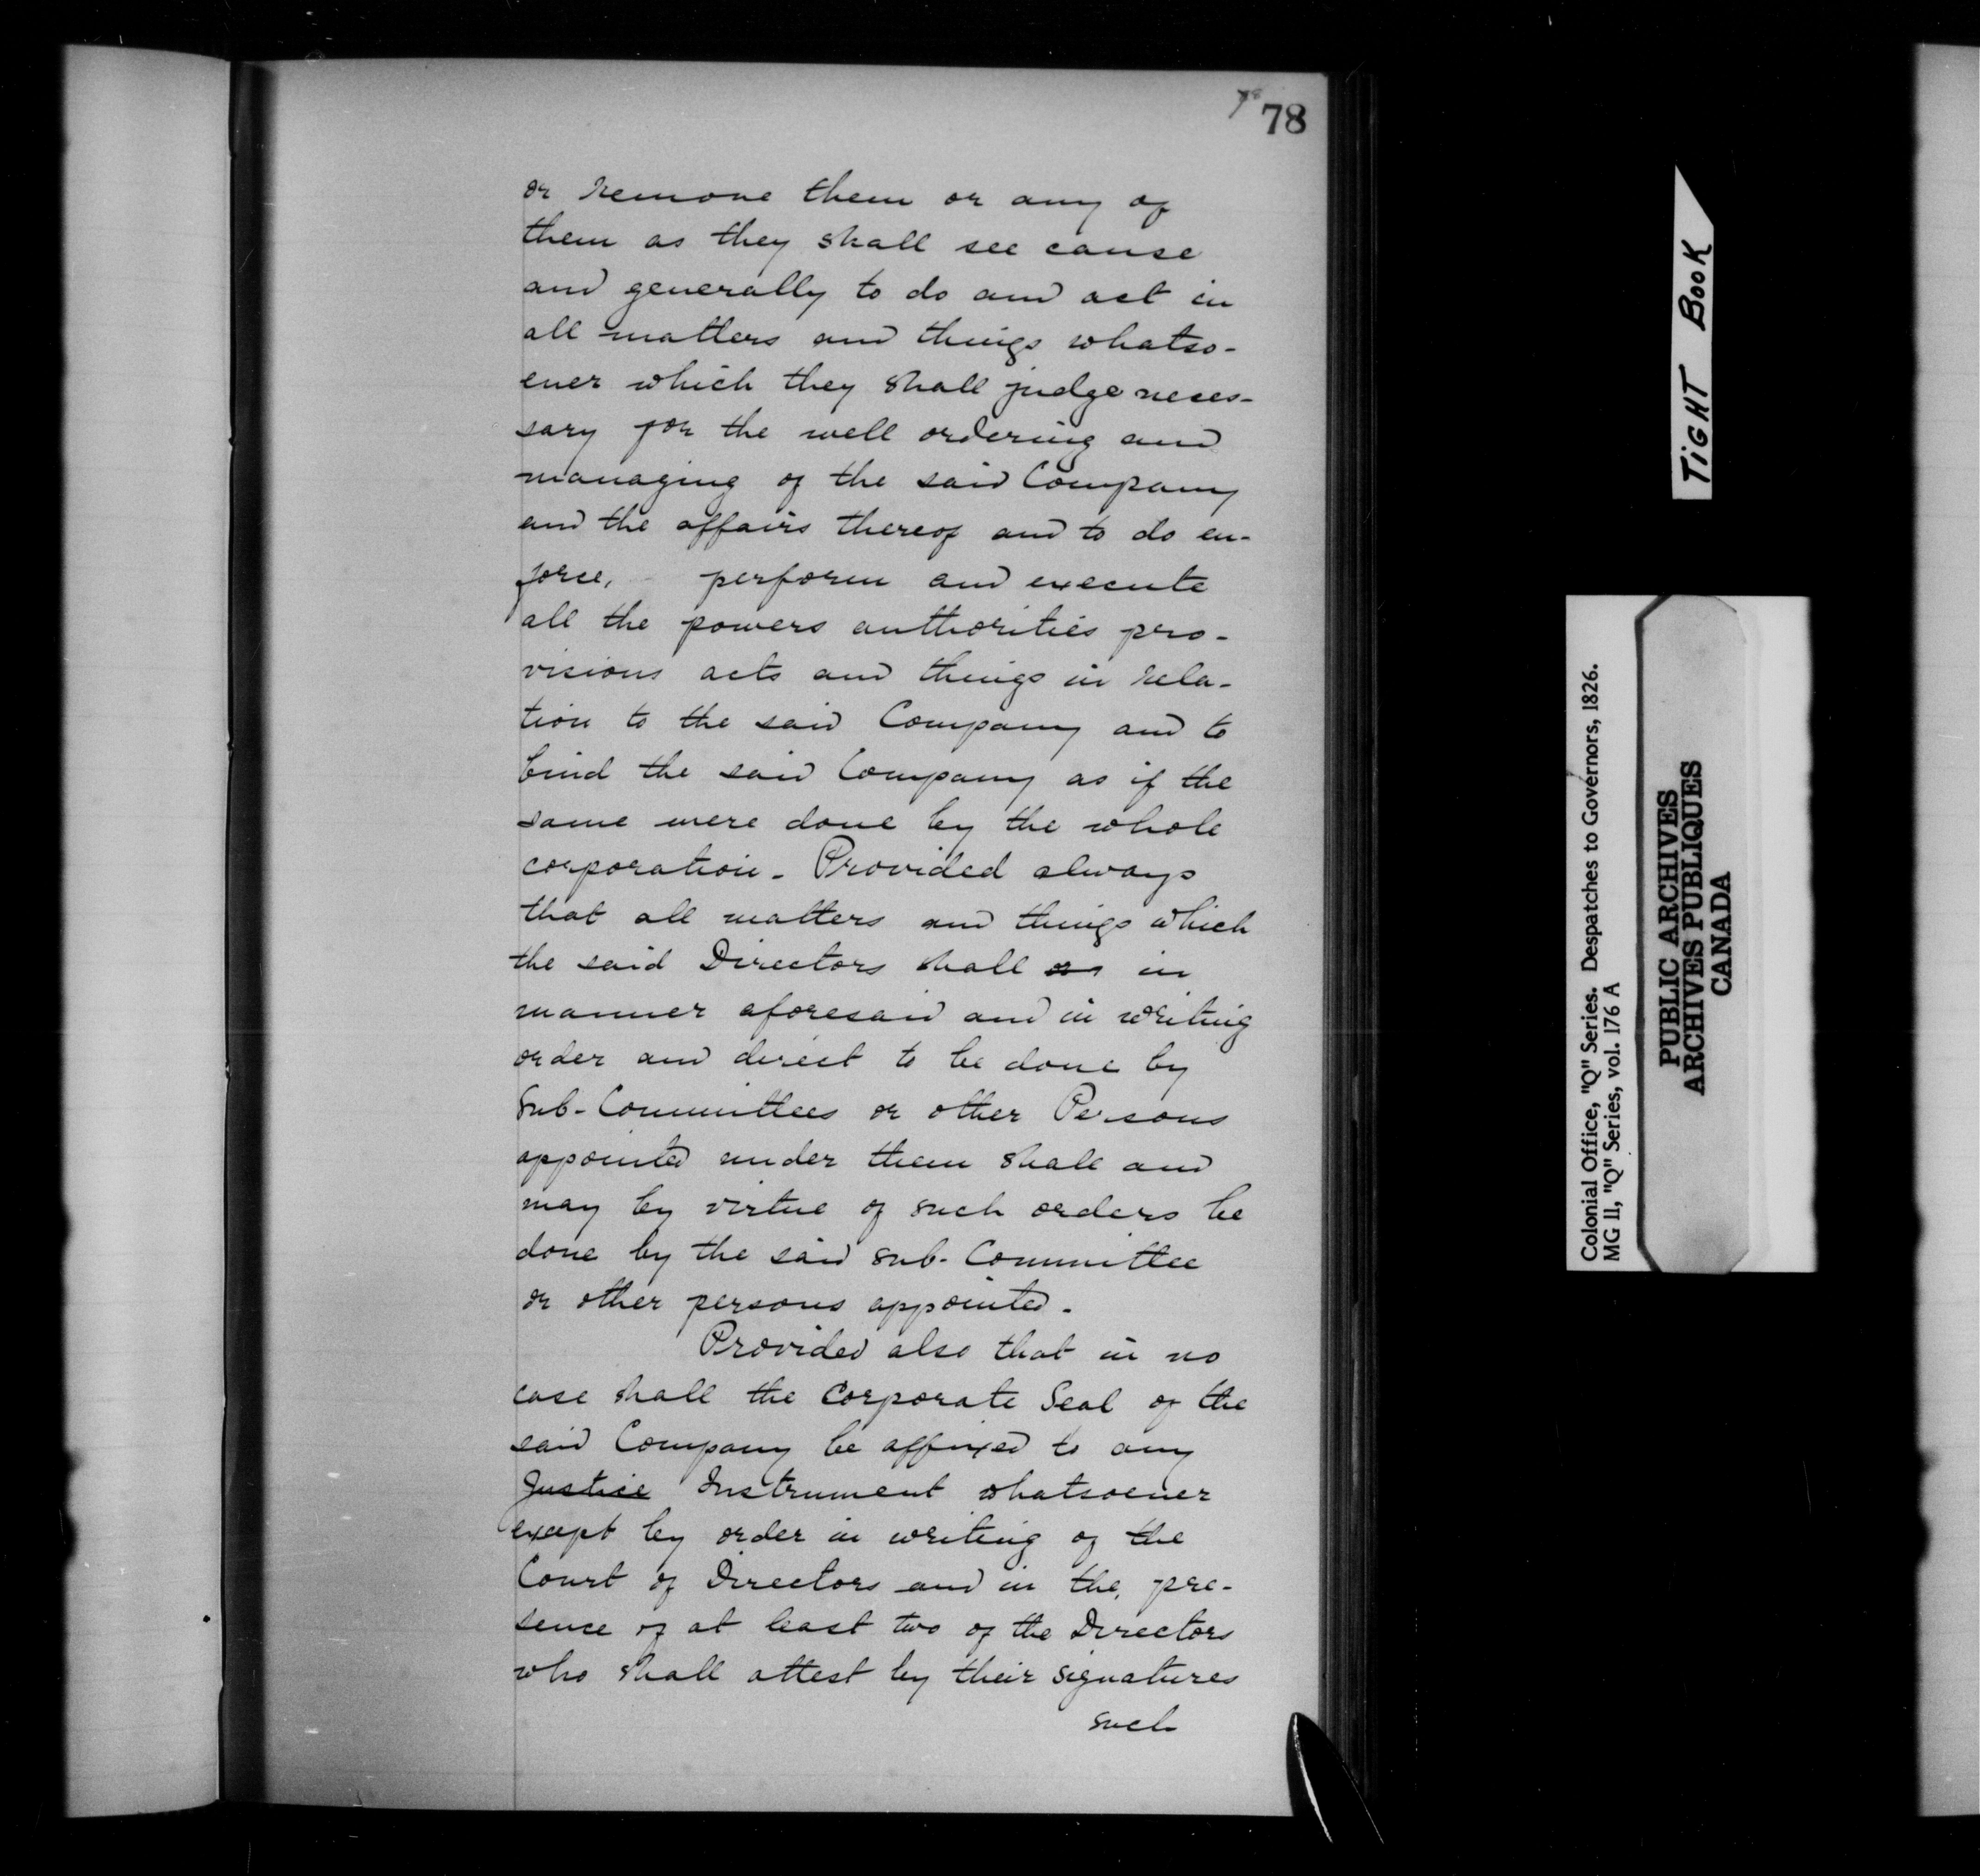 78
or remove them or any of
them as they shall see cause
and generally to do and act in
all matters and things whatso-
ever which they shall judge neces-
sary for the well ordering and
managing of the said Company
and the affairs thereof and to do en-
force, perform and execute
all the powers authorities pro-
visions acts and things in rela-
tion to the said Company and to
bind the said Company as if the
same were done by the whole
corporation - Provided always
that all matters and things which
the said Directors shall in
manner aforesaid and in writing
order and direct to be done by
Sub-Committees or other Persons
appointed under them shall and
may by virtue of such orders be
done by the said sub-Committee
or other persons appointed -
Provided also that in no
case shall the Corporate Seal of the
said Company be affixed to any
Justice Instrument whatsoever
except by order in writing of the
Court of Directors and in the pre-
sence of at least two of the Directors
who shall attest by their signatures
such
TIGHT BOOK
Colonial Office, "Q" Series. Despatches to Governors, 1826.
MG 11, "Q" Series, vol. 176 A
PUBLIC ARCHIVES
ARCHIVES PUBLIQUES
CANADA